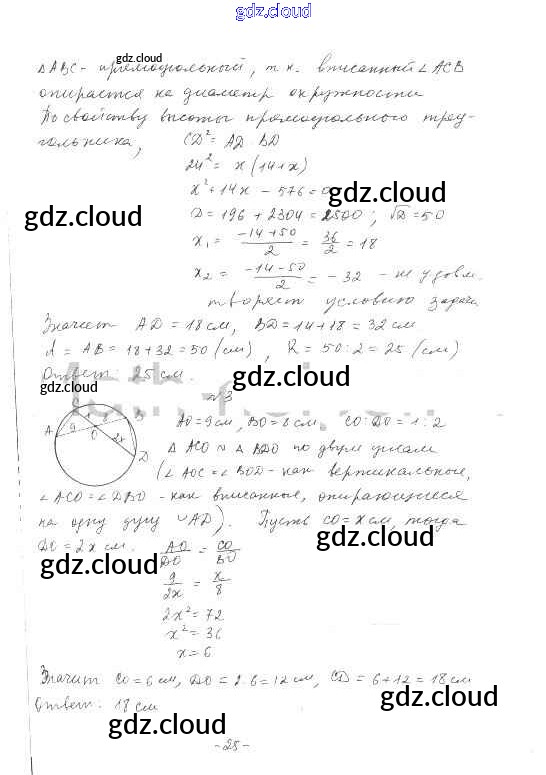 gdz.cloud
gdz.cloud
△ABC - прямоугольный, т.к. вписанный ∠ACB
опирается на диаметр окружности
По свойству высоты прямоугольного треу-
гольника, CD² = AD · BD
24² = x(14+x)
x² + 14x - 576 = 0
gdz.cloud
gdz.cloud
D = 196 + 2304 = 2500; √D = 50
x₁ = (-14+50)/2 = 36/2 = 18
gdz.cloud
x₂ = (-14-50)/2 = -32 - не удовл.
творяет условию задачи
Значит AD = 18 см, BD = 14+18 = 32 см
d = AB = 18+32 = 50 (см), R = 50:2 = 25 (см)
Ответ: 25 см.
gdz.cloud
№3
A 9 O 8 B 2x D
AO = 9 см, BO = 8 см, CO:DO = 1:2
△ACO ~ △BDO по двум углам
gdz.cloud
(∠AOC = ∠BOD - как вертикальные,
∠ACO = ∠DBO - как вписанные, опирающиеся
на одну дугу ∪AD). Пусть CO = x см, тогда
gdz.cloud
DO = 2x см. AO/DO = CO/BO
gdz.cloud
9/2x = x/8
2x² = 72
x² = 36
x = 6
Значит CO = 6 см, DO = 2·6 = 12 см, CD = 6+12 = 18 см
gdz.cloud
Ответ: 18 см
gdz.cloud
- 25 -
gdz.cloud